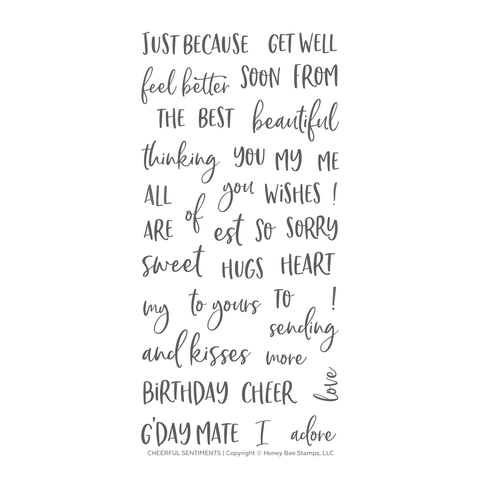 JUST BECAUSE GET WELL
feel better SOON FROM
THE BEST beautiful
thinking YOU MY ME
ALL of you WISHES !
ARE est SO SORRY
sweet HUGS HEART
my to yours TO !
sending
and kisses more
BIRTHDAY CHEER love
G'DAY MATE I adore
CHEERFUL SENTIMENTS | Copyright © Honey Bee Stamps, LLC